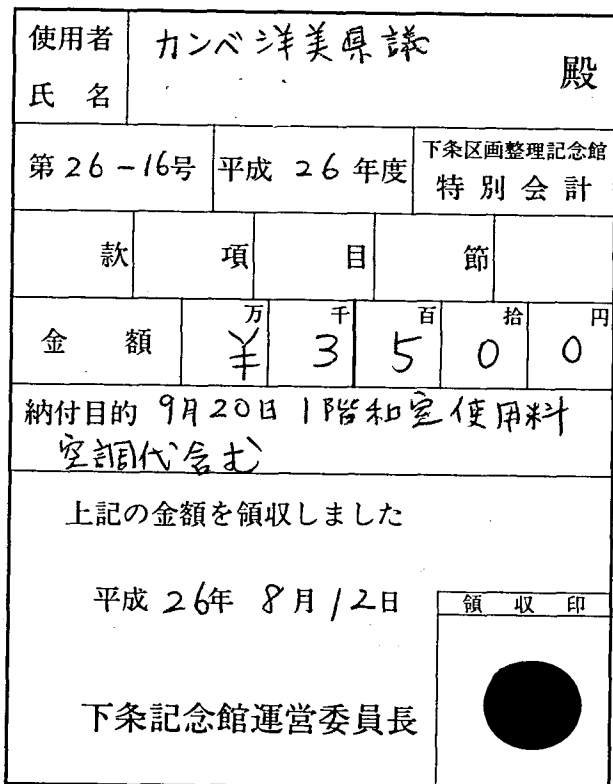 使用者氏名 カンベ洋美県議 殿
第26-16号 平成 26 年度 下条区画整理記念館
特別会計
款 項 目 節
金額 万 千 百 拾 円
¥ 3 5 0 0
納付目的 9月20日 1階和室使用料
空調代含む
上記の金額を領収しました
平成 26年 8月12日
領収印
下条記念館運営委員長